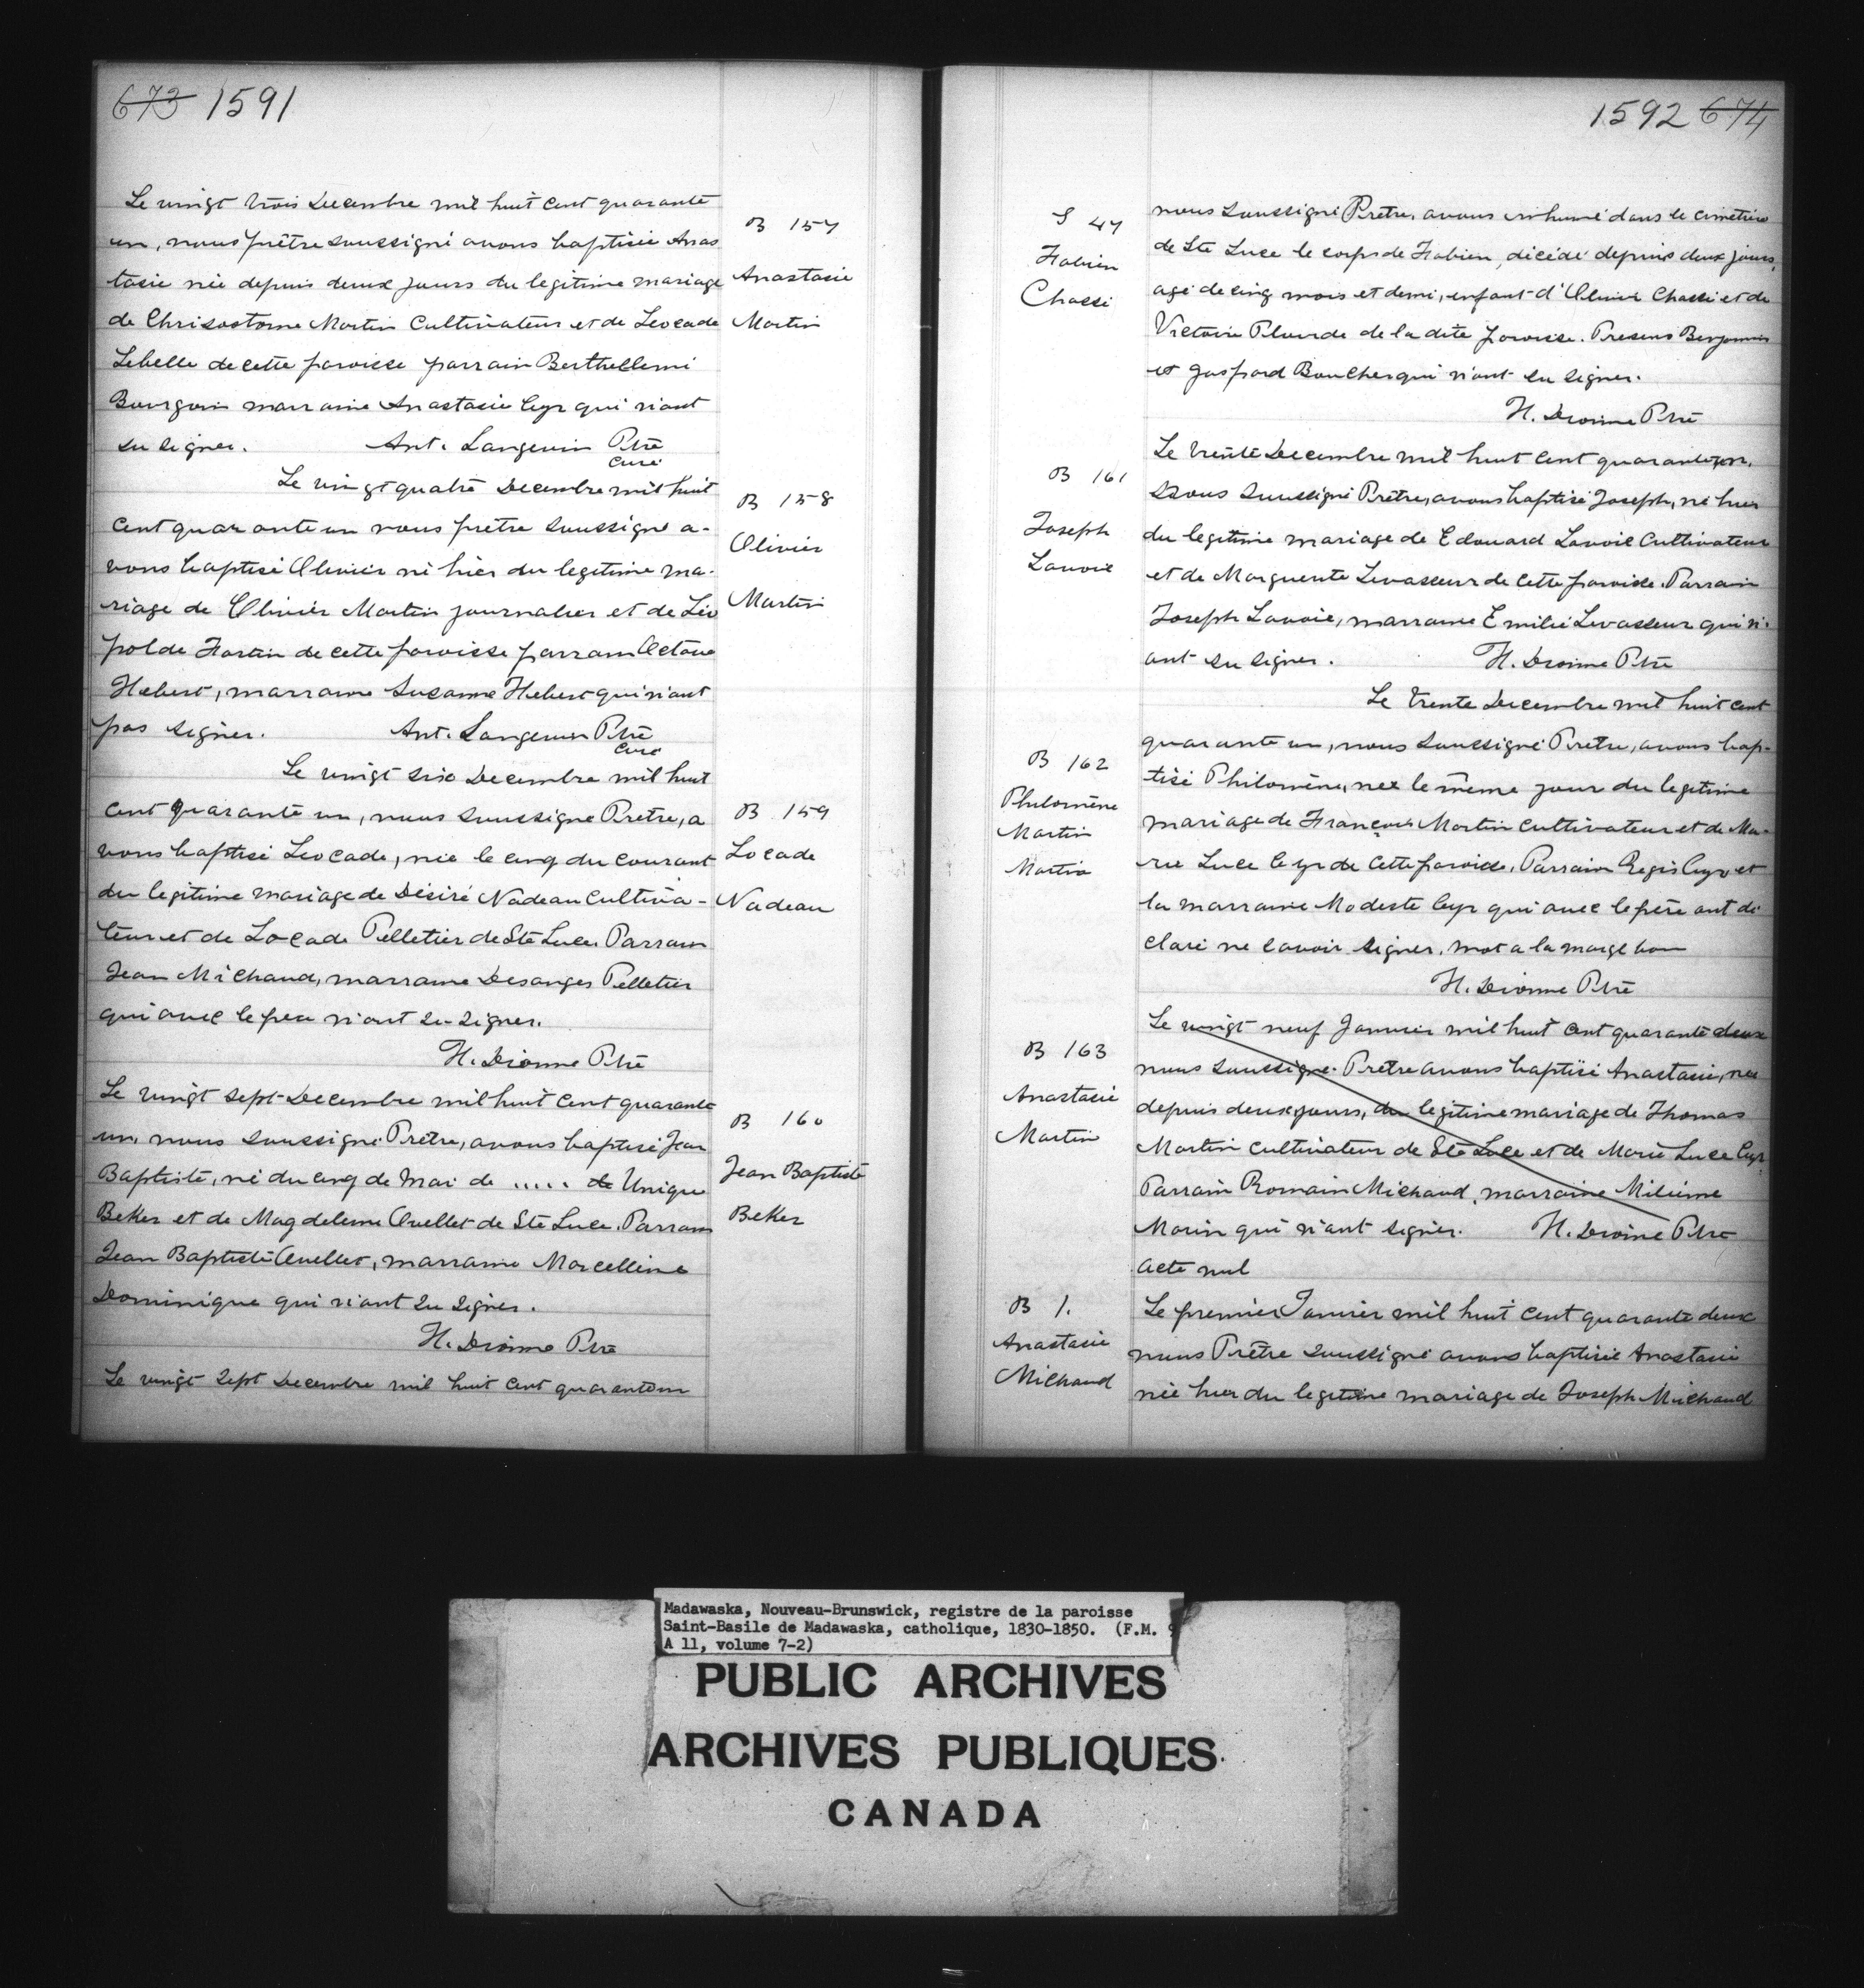 673 1591
Le vingt trois Decembre mil huit cent quarante
un, nous prêtre soussigné avons baptisée Anas
tasie née depuis deux jours du legitime mariage
de Chrisostome Martin Cultivateur et de Leocade
Lebelle de cette paroisse parrain Berthellemi
Bourgoin marraine Anastasie Cyr qui n'ont
su signer. Ant. Langevin Ptre
Curé
B 157
Anastasie
Martin
Le vingt quatre Decembre mil huit
cent quarante un nous prêtre soussigné a-
vons baptisé Olivier né hier du legitime ma-
riage de Olivier Martin journalier et de Léo
polde Fortin de cette paroisse parrain Octave
Hebert, marraine Susanne Hebert qui n'ont
pas signer. Ant. Langevin Ptre
Curé
B 158
Olivier
Martin
Le vingt six Decembre mil huit
cent quarante un, nous soussigné Pretre, a
vons baptisé Leocade, née le cinq du courant
du legitime mariage de Désiré Nadeau Cultiva-
teur et de Locade Pelletier de Ste Luce. Parrain
Jean Michaud, marraine Desanges Pelletier
qui avec le pere n'ont su signer.
H. Dionne Ptre
B 159
Locade
Nadeau
Le vingt sept Decembre mil huit cent quarante
un, nous soussigné Prêtre, avons baptisé Jean
Baptiste, né du cinq de Mai de ..... de Unique
Beker et de Magdeleine Ouellet de Ste Luce. Parrain
Jean Baptiste Ouellet, marraine Marcelline
Dominique qui n'ont su signer.
H. Dionne Ptre
B 160
Jean Baptiste
Beker
Le vingt sept Decembre mil huit cent quarante un
1592 674
S 47
Fabien
Chassi
nous soussigné Prêtre, avons inhumé dans le cimetière
de Ste Luce le corps de Fabien, décédé depuis deux jours,
agé de cinq mois et demi, enfant d'Olivier Chassi et de
Victoire Plourde de la dite paroisse. Presens Benjamin
et Gaspard Boucher qui n'ont su signer.
H. Dionne Ptre
B 161
Joseph
Lavoie
Le trente Decembre mil huit cent quarante un,
Nous soussigné Prêtre, avons baptisé Joseph, né hier
du legitime mariage de Edouard Lavoie Cultivateur
et de Marguerite Levasseur de cette paroisse. Parrain
Joseph Lavoie, marraine Emilie Levasseur qui n'-
ont su signer. H. Dionne Ptre
B 162
Philomène
Martin
Martin
Le trente Decembre mil huit cent
quarante un, nous soussigné Pretre, avons bap-
tisé Philomène, née le même jour du legitime
mariage de François Martin cultivateur et de Ma-
rie Luce Cyr de cette paroisse. Parrain Regis Cyr et
la marraine Modeste Cyr qui avec le père ont dé
claré ne savoir signer. mot a la marge bon
H. Dionne Ptre
B 163
Anastasie
Martin
Le vingt neuf Janvier mil huit cent quarante deux
nous soussigné Prêtre avons baptisé Anastasie, née
depuis deux jours, du legitime mariage de Thomas
Martin cultivateur de Ste Luce et de Marie Luce Cyr
Parrain Romain Michaud, marraine
Morin qui n'ont signer. H. Dionne Ptre
acte nul
B 1.
Anastasie
Michaud
Le premier Janvier mil huit cent quarante deux
nous Prêtre soussigné avons baptisée Anastasie
née hier du legitime mariage de Joseph Michaud
Madawaska, Nouveau-Brunswick, registre de la paroisse
Saint-Basile de Madawaska, catholique, 1830-1850. (F.M. 9
A 11, volume 7-2)
PUBLIC ARCHIVES
ARCHIVES PUBLIQUES
CANADA